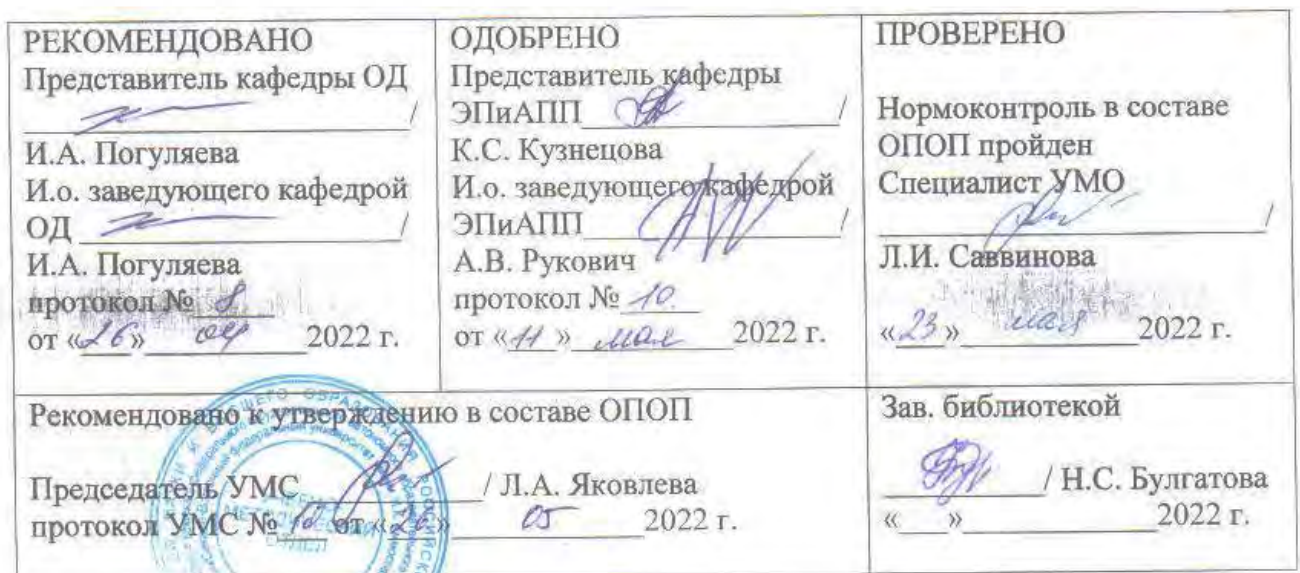 РЕКОМЕНДОВАНО
Представитель кафедры ОД
/
И.А. Погуляева
И.о. заведующего кафедрой
ОД /
И.А. Погуляева
протокол № 8
от «26» 04 2022 г.
ОДОБРЕНО
Представитель кафедры
ЭПиАПП /
К.С. Кузнецова
И.о. заведующего кафедрой
ЭПиАПП /
А.В. Рукович
протокол № 10.
от «11» мая 2022 г.
ПРОВЕРЕНО
Нормоконтроль в составе
ОПОП пройден
Специалист УМО
/
Л.И. Саввинова
«23» мая 2022 г.
Рекомендовано к утверждению в составе ОПОП
Председатель УМС / Л.А. Яковлева
протокол УМС № от «26» 05 2022 г.
Зав. библиотекой
/ Н.С. Булгатова
« » 2022 г.